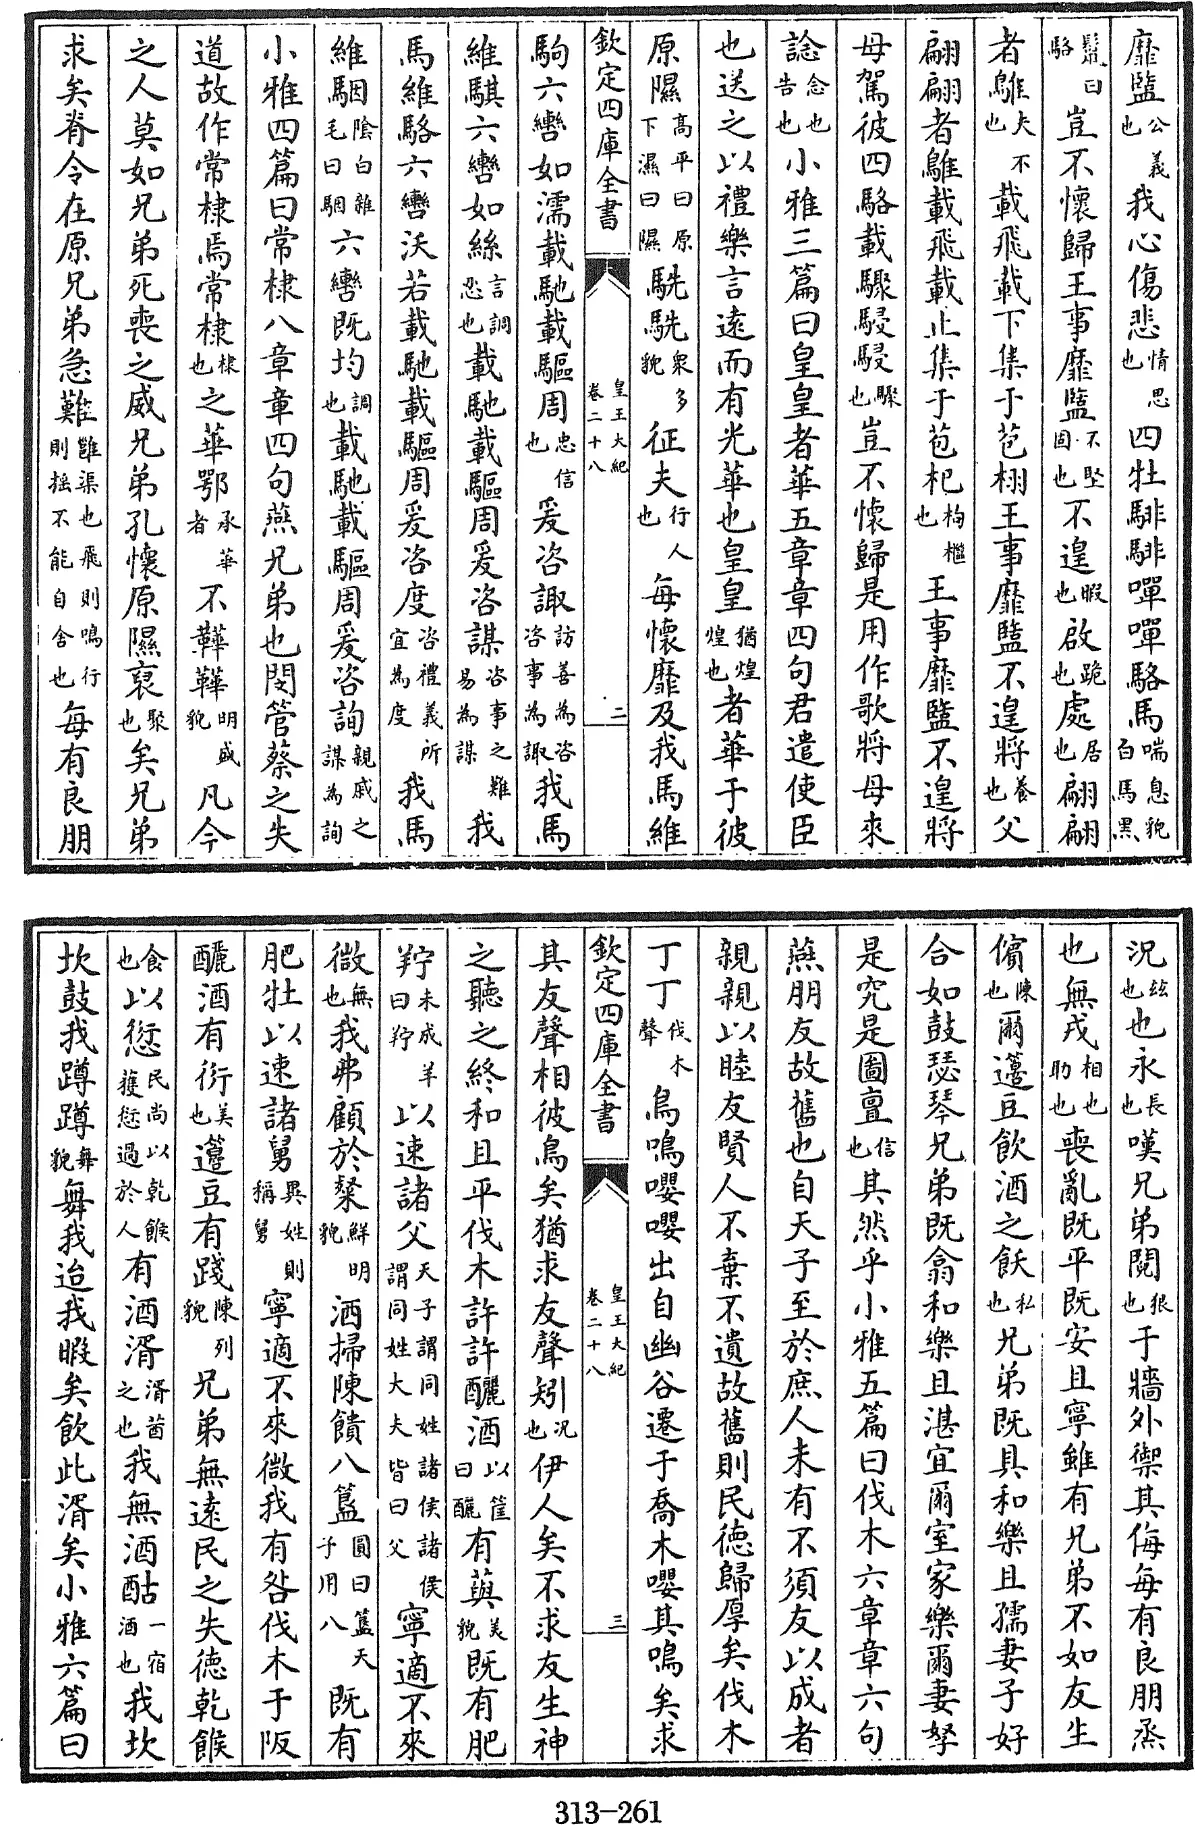 靡盬公義也我心傷悲情思也四牡騑騑嘽嘽駱馬喘息貌白馬黑
鬛曰駱豈不懷歸王事靡盬不堅固也不遑暇也啟跪也處居也翩翩
者鵻夫不也載飛載下集于苞栩王事靡盬不遑將養也父
翩翩者鵻載飛載止集于苞杞枸檵也王事靡盬不遑將
母駕彼四駱載驟駸駸驟也豈不懷歸是用作歌將母來
諗念也告也小雅三篇曰皇皇者華五章章四句君遣使臣
也送之以禮樂言遠而有光華也皇皇猶煌煌也者華于彼
原隰高平曰原下濕曰隰駪駪衆多貌征夫行人也每懷靡及我馬維
欽定四庫全書 皇王大紀卷二十八 二
駒六轡如濡載馳載驅周忠信也爰咨諏訪善為咨咨事為諏我馬
維騏六轡如絲言調忍也載馳載驅周爰咨謀咨事之難易為謀我
馬維駱六轡沃若載馳載驅周爰咨度咨禮義所宜為度我馬
維駰陰白雜毛曰駰六轡既均調也載馳載驅周爰咨詢親戚之謀為詢
小雅四篇曰常棣八章章四句燕兄弟也閔管蔡之失
道故作常棣焉常棣棣也之華鄂承華者不韡韡明盛貌凡今
之人莫如兄弟死喪之威兄弟孔懷原隰裒聚也矣兄弟
求矣脊令在原兄弟急難雝渠也飛則鳴行則揺不能自舍也每有良朋
況兹也也永長也嘆兄弟鬩狠也于牆外禦其侮每有良朋烝
也無戎相也助也喪亂既平既安且寧雖有兄弟不如友生
儐陳也爾籩豆飲酒之飫私也兄弟既具和樂且孺妻子好
合如鼓瑟琴兄弟既翕和樂且湛宜爾室家樂爾妻孥
是究是圖亶信也其然乎小雅五篇曰伐木六章章六句
燕朋友故舊也自天子至於庶人未有不須友以成者
親親以睦友賢人不棄不遺故舊則民德歸厚矣伐木
丁丁伐木聲鳥鳴嚶嚶出自幽谷遷于喬木嚶其鳴矣求
欽定四庫全書 皇王大紀卷二十八 三
其友聲相彼鳥矣猶求友聲矧况也伊人矣不求友生神
之聽之終和且平伐木許許釃酒以筐曰釃有藇美貌既有肥
羜未成羊曰羜以速諸父天子謂同姓諸侯諸侯謂同姓大夫皆曰父寧適不來
微無也我弗顧於粲鮮明貌洒掃陳饋八簋圓曰簋天子用八既有
肥牡以速諸舅異姓則稱舅寧適不來微我有咎伐木于阪
釃酒有衍美也籩豆有踐陳列貌兄弟無遠民之失德乾餱
食也以愆民尚以乾餱獲愆過於人有酒湑湑莤之也我無酒酤一宿酒也我坎
坎鼓我蹲蹲舞貌舞我迨我暇矣飲此湑矣小雅六篇曰
313-261